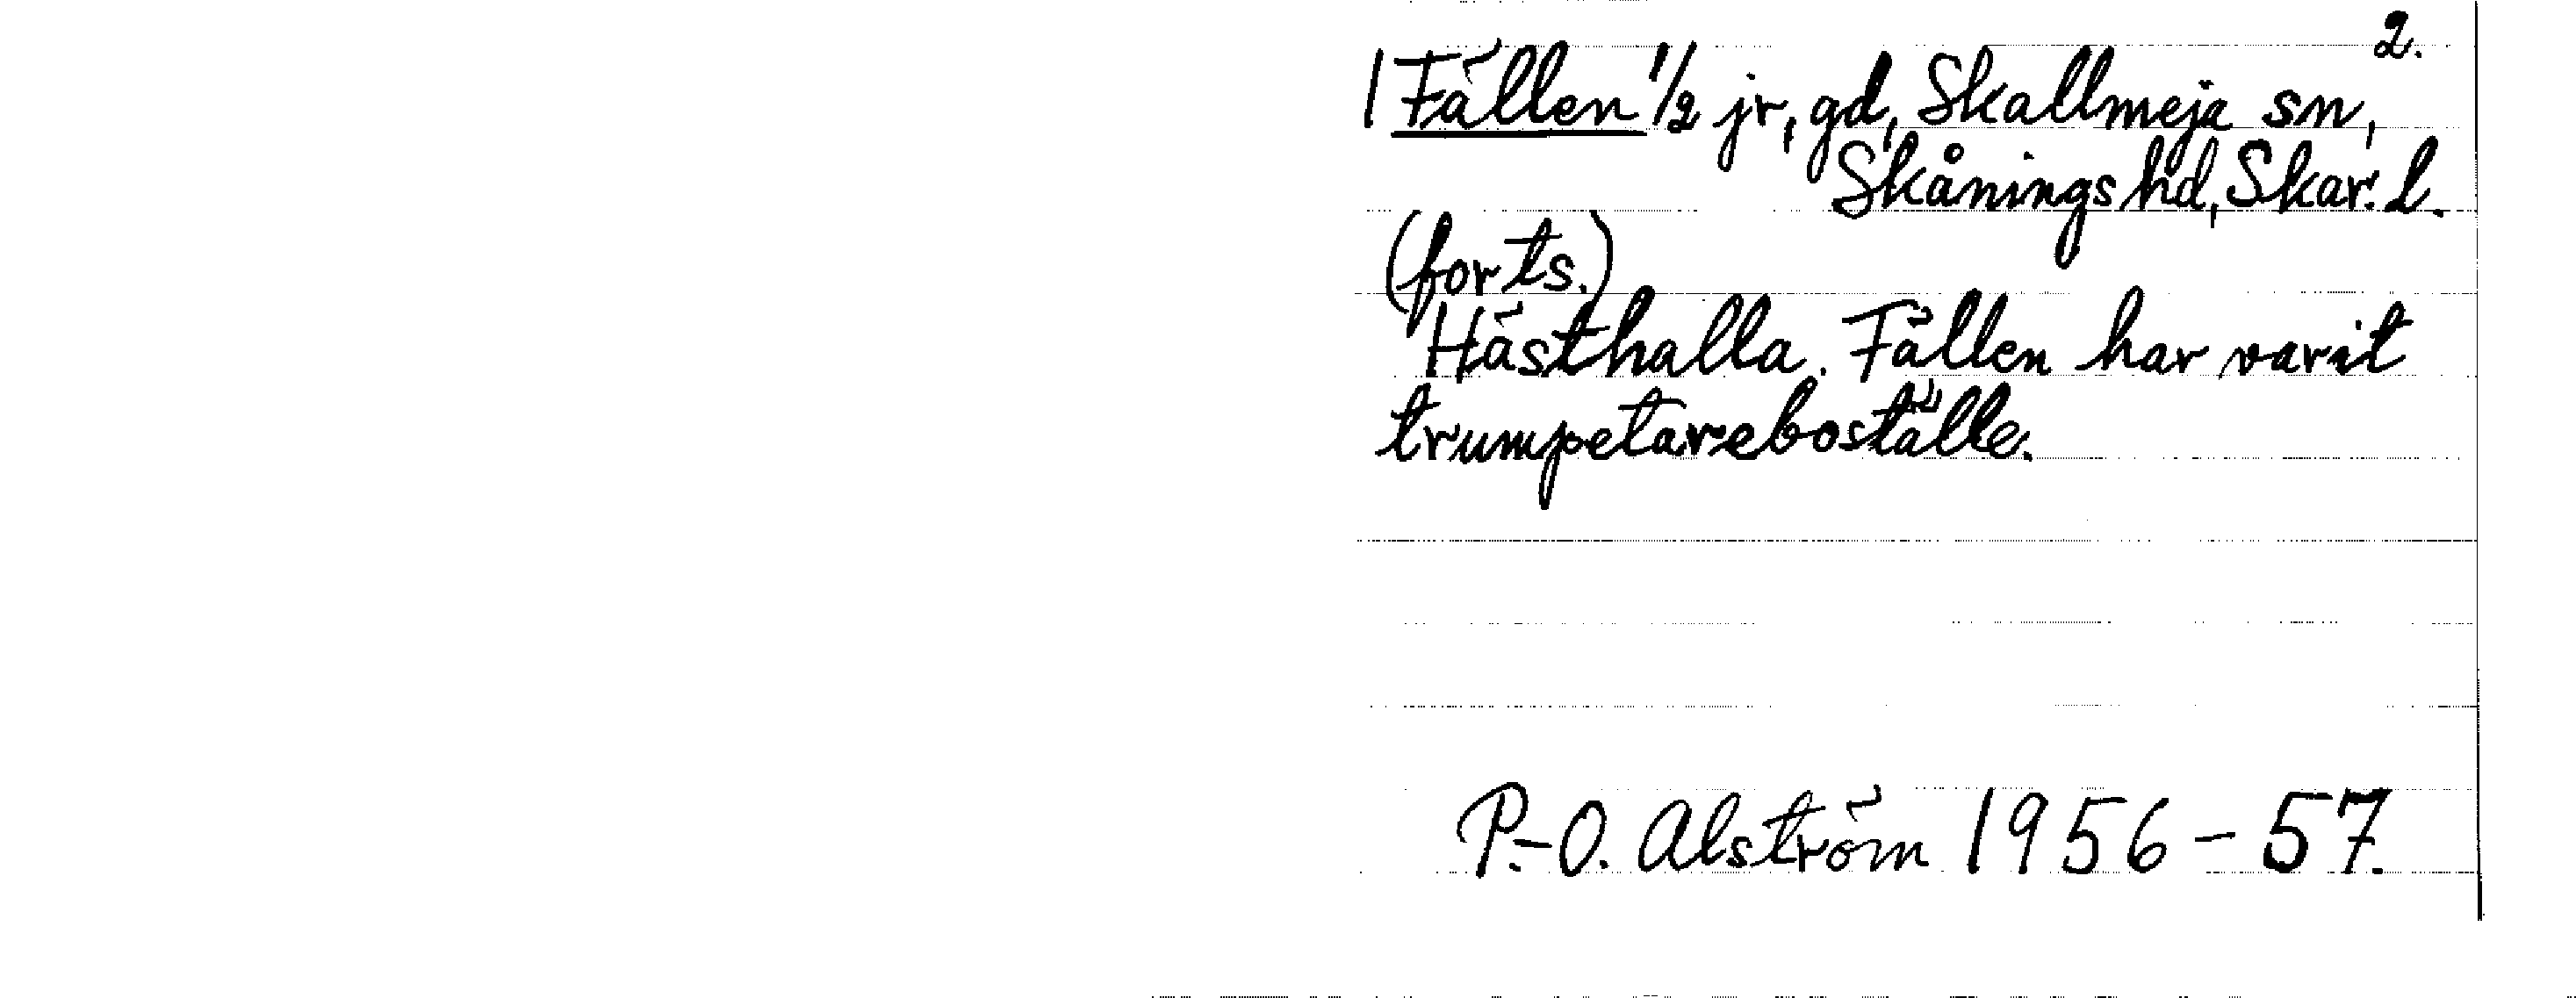 2.
1 Fällen 1/2 jr, gd, Skallmeja sn,
Skånings hd, Skar. l.
(forts.)
Hästhalla. Fällen har varit
trumpetareboställe.
P.-O. Alström 1956-57.